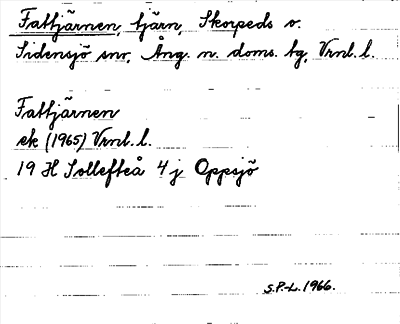 Fattjärnen, tjärn, Skorpeds o.
Sidensjö snr, Ång. n. doms. tg, Vrnl. l.
Fattjärnen
ek (1965) Vrnl. l.
19 H Sollefteå 4 j Oppsjö
S.P.-L. 1966.